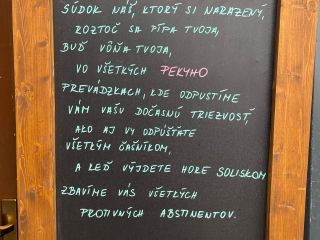 SÚDOK NÁŠ, KTORÝ SI NARAZENÝ,
ROZTOČ SA PÍPA TVOJA,
BUĎ VÔŇA TVOJA,
VO VŠETKÝCH PEKYHO
PREVÁDZKACH, KDE ODPUSTÍME
VÁM VAŠU DOČASNÚ TRIEZVOSŤ,
AKO AJ VY ODPÚŠŤATE
VŠETKÝM ČAŠNÍKOM,
A KEĎ VÝJDETE HORE SOLISKOM
ZBAVÍME VÁS VŠETKÝCH
PROTIVNÝCH ABSTINENTOV.